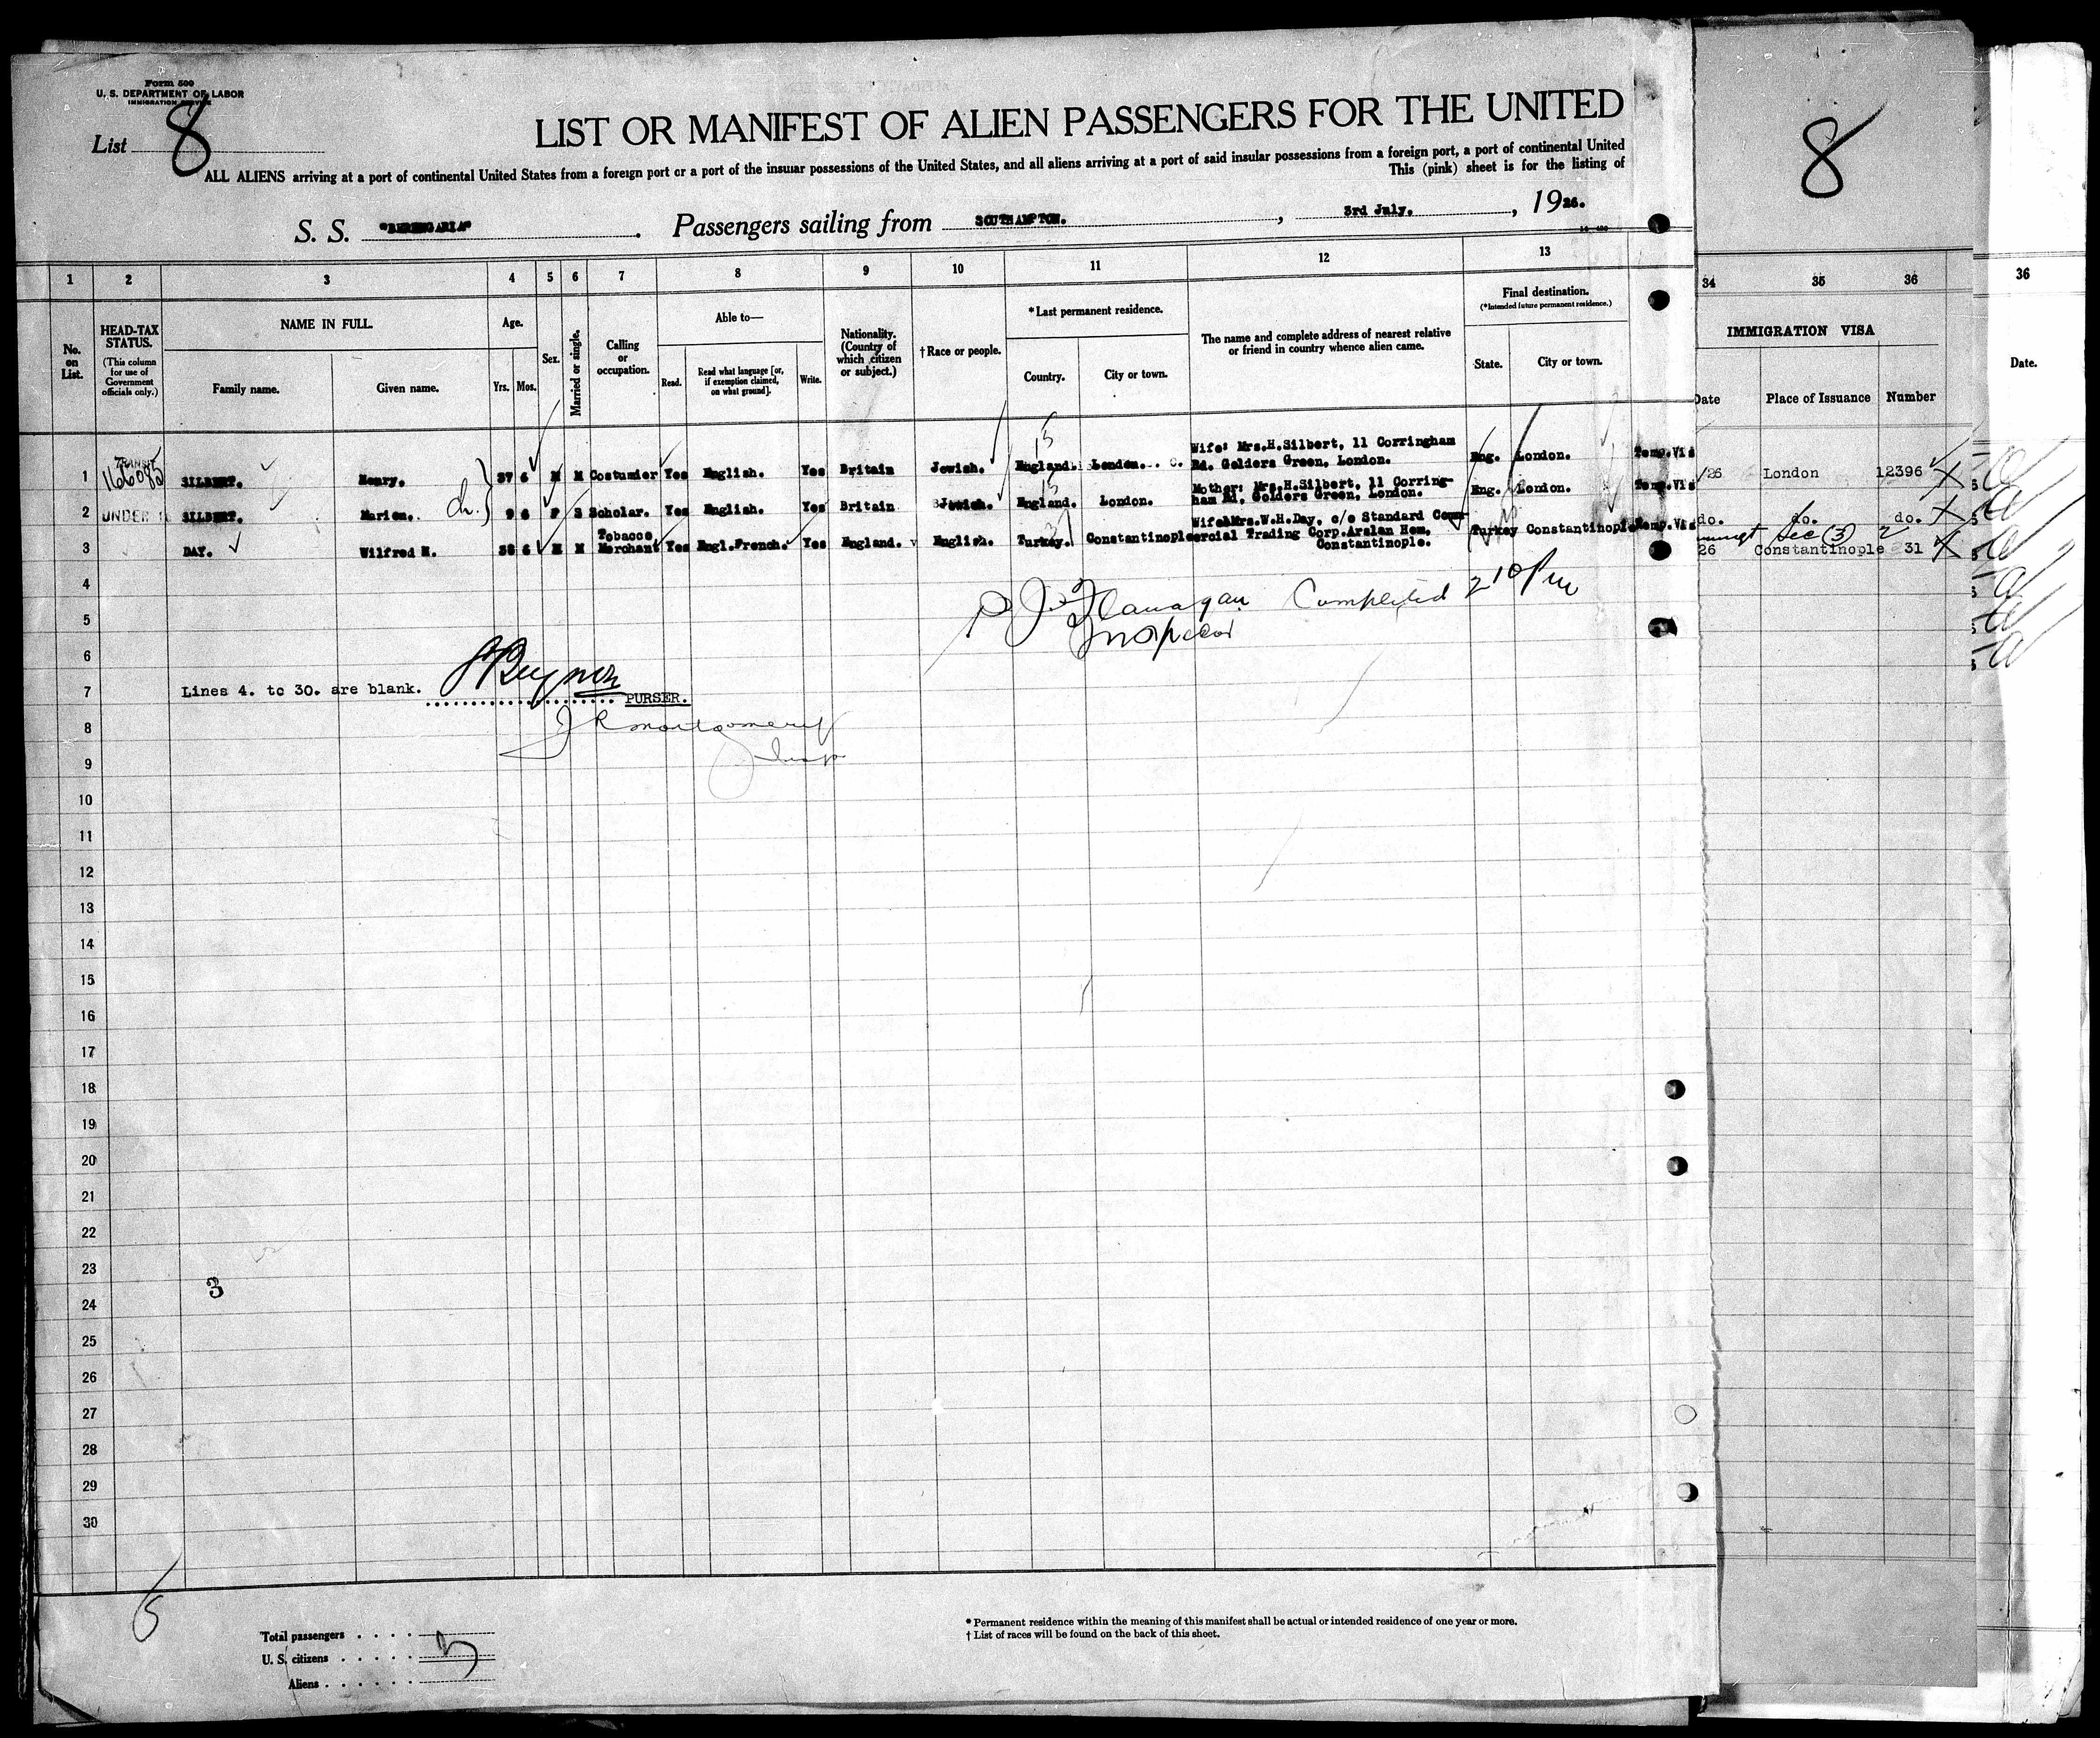 Form 500
U. S. DEPARTMENT OF LABOR
IMMIGRATION SERVICE
List 8
LIST OR MANIFEST OF ALIEN PASSENGERS FOR THE UNITED
ALL ALIENS arriving at a port of continental United States from a foreign port or a port of the insular possessions of the United States, and all aliens arriving at a port of said insular possessions from a foreign port, a port of continental United
This (pink) sheet is for the listing of
S. S. "BERENGARIA". Passengers sailing from SOUTHAMPTON., 3rd July., 1926.
8
1 2 3 4 5 6 7 8 9 10 11 12 13 34 35 36 36
No. on List.
HEAD-TAX STATUS.
(This column for use of Government officials only.)
NAME IN FULL.
Family name. Given name.
Age.
Yrs. Mos.
Sex.
Married or single.
Calling or occupation.
Able to—
Read. Read what language [or, if exemption claimed, on what ground]. Write.
Nationality. (Country of which citizen or subject.)
† Race or people.
*Last permanent residence.
Country. City or town.
The name and complete address of nearest relative or friend in country whence alien came.
Final destination.
(*Intended future permanent residence.)
State. City or town.
IMMIGRATION VISA
Date Place of Issuance Number
Date.
1 TRANSIT SILBERT. Henry. 37 6 M M Costumier Yes English. Yes Britain Jewish. England. London. Wife: Mrs.H.Silbert, 11 Corringham Rd. Golders Green, London. Eng. London. Temp.Vis /26 London 12396
2 UNDER SILBERT. Marion. ch. 9 6 F S Scholar. Yes English. Yes Britain Jewish. England. London. Mother: Mrs.H.Silbert, 11 Corringham Rd. Golders Green, London. Eng. London. Temp.Vis do. do. do.
3 DAY. Wilfred H. 38 6 M M Tobacco Merchant Yes Engl.French. Yes England. English. Turkey. Constantinople Wife: Mrs.W.H.Day, c/o Standard Commercial Trading Corp. Arslan Hem, Constantinople. Turkey Constantinople Temp.Vis Sec (3) 2 26 Constantinople 31
4
P J Flanagan Completed 2 10 Pm
5
Inspector
6
7 Lines 4. to 30. are blank. PURSER.
8 J R Montgomery
9 Insp
10
11
12
13
14
15
16
17
18
19
20
21
22
23
3
24
25
26
27
28
29
30
Total passengers
U. S. citizens
Aliens
3
* Permanent residence within the meaning of this manifest shall be actual or intended residence of one year or more.
† List of races will be found on the back of this sheet.